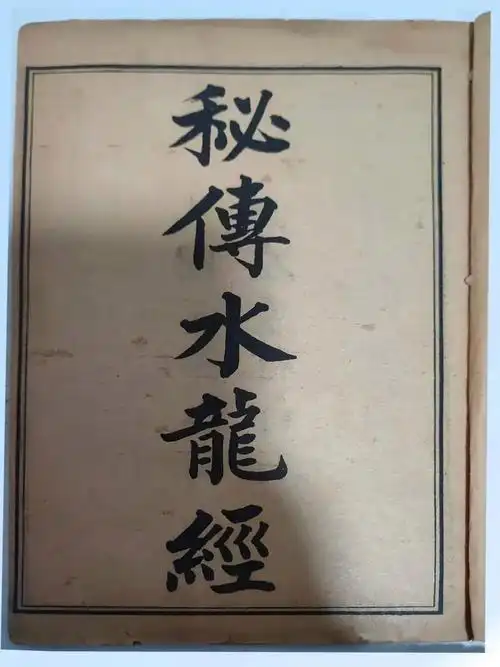 秘傳水龍經